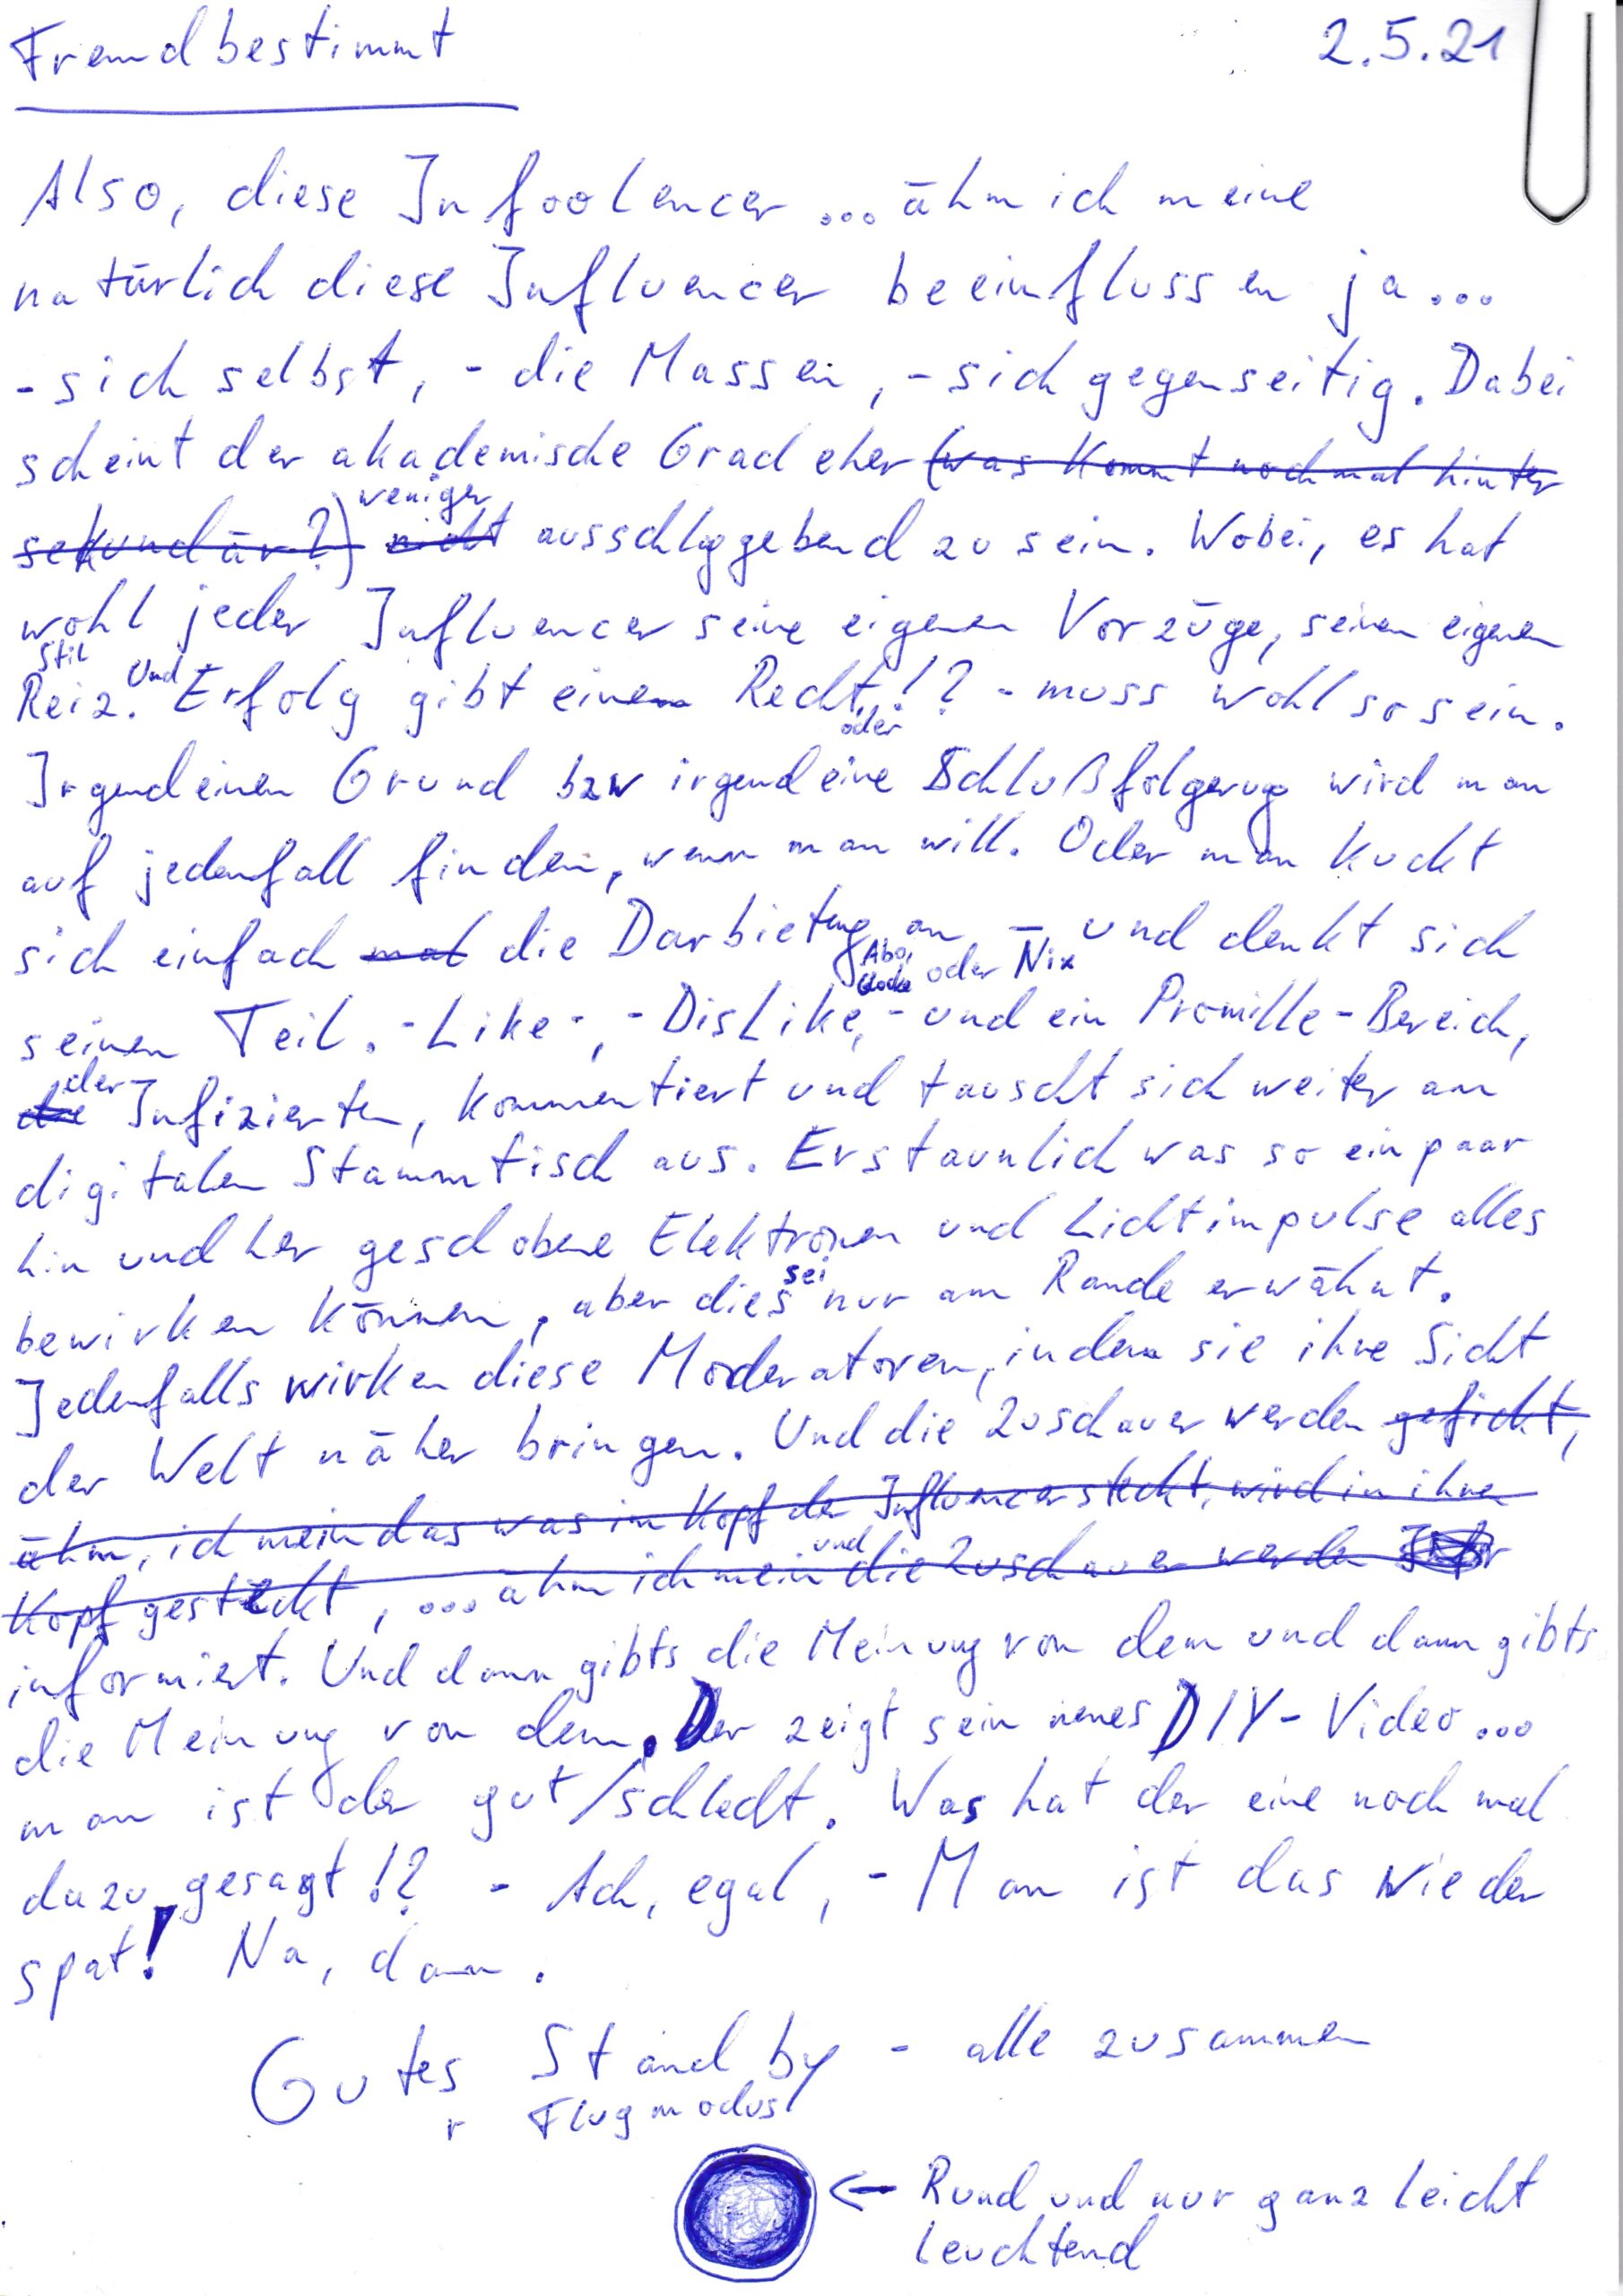 Fremdbestimmt 2.5.21
Also, diese Infoolencer ... ähm ich meine
natürlich diese Influencer beeinflussen ja...
- sich selbst, - die Massen, - sich gegenseitig. Dabei
scheint der akademische Grad eher (was kommt nochmal hinter
sekundär?) nicht weniger ausschlaggebend zu sein. Wobei, es hat
wohl jeder Influencer seine eigenen Vorzüge, seinen eigenen
Stil
Reiz. Und Erfolg gibt einem Recht, oder!? - muss wohl so sein.
Irgendeinen Grund bzw irgendeine Schlußfolgerug wird man
auf jedenfall finden, wenn man will. Oder man kuckt
sich einfach mal die Darbietung an - und denkt sich
Abo, Glocke oder Nix
seinen Teil. - Like -, - DisLike, - und ein Promille-Bereich,
die der Infizierten, kommentiert und tauscht sich weiter am
digitalen Stammtisch aus. Erstaunlich was so ein paar
hin und her geschobene Elektronen und Lichtimpulse alles
bewirken können, aber dies sei nur am Rande erwähnt.
Jedenfalls wirken diese Moderatoren, indem sie ihre Sicht
der Welt näher bringen. Und die Zuschauer werden gefickt,
ähm, ich mein das was im Kopf der Influencer steckt, wird in ihren
Kopf gesteckt, ... ähm ich mein und die Zuschauer werden
informiert. Und dann gibts die Meinung von dem und dann gibts
die Meinung von dem. Der zeigt sein neues DIY-Video...
man ist der gut/schlecht. Was hat der eine noch mal
dazu gesagt!? - Ach, egal, - Man ist das wieder
spät! Na, dann.
Gutes Standby - alle zusammen
r Flugmodus
← Rund und nur ganz leicht
leuchtend